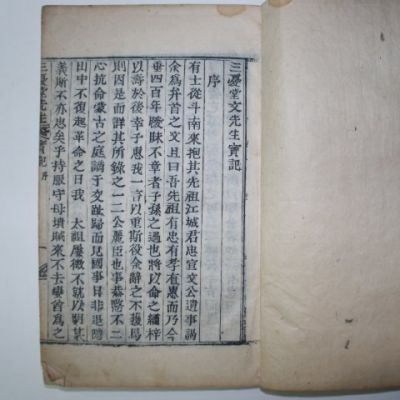 三憂堂文先生實記
序
有士從斗南來抱其先祖江城君忠宣文公遺事謁
余爲弁首之文且曰吾先祖有忠有孝有惠而乃今
垂四百年曖昧不章者子孫之過也將以命之繡梓
以壽於後幸子惠我一言以重斯役余辭之不獲
則因是而詳其所錄之一二公麗臣也事恭愍不二
心抗命蒙古之庭謫于交趾歸而見國事日非退隱
田中不復起革命之日我 太祖屢徵不就以明其
義斯不亦忠矣乎持服守母墳賊來不去變酋爲之
三憂堂先生實記 序